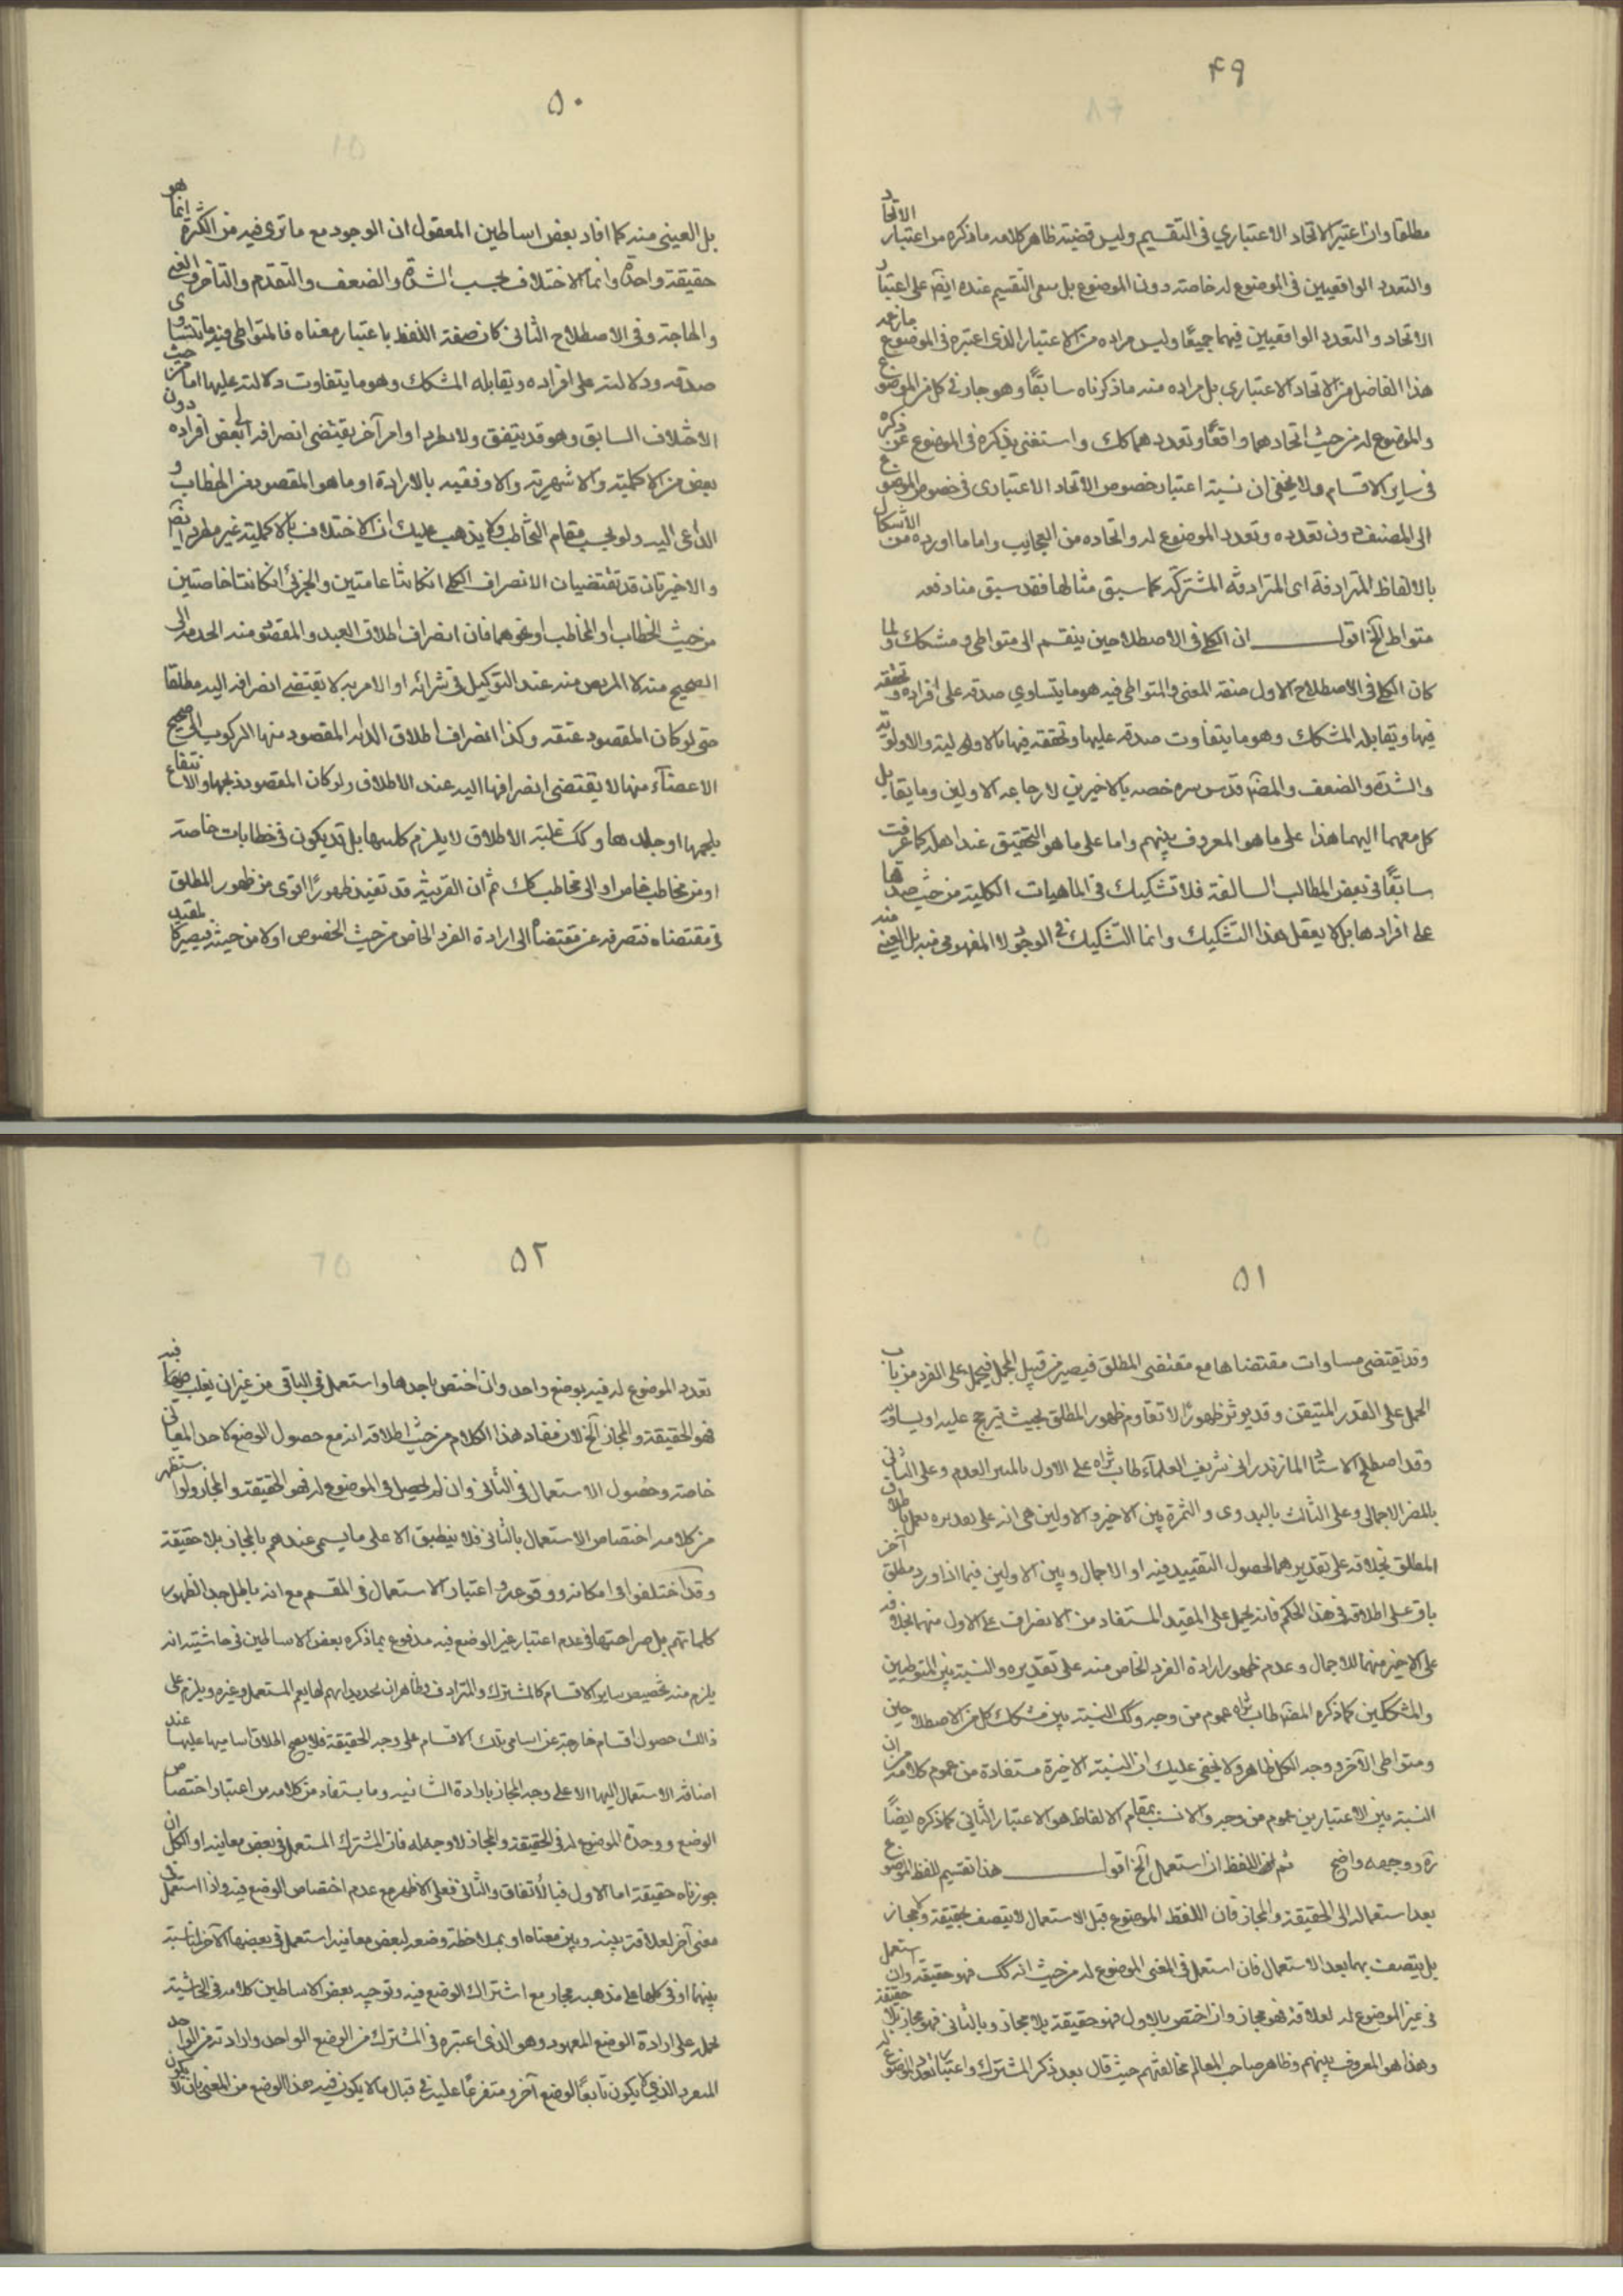 ۴۹
مطلقا وان اعتبر الاتحاد الاعتباري في التقسيم وليس قضيته ظاهر كلامه ما ذكره من اعتبار الاتحاد
والتعدد الواقعيين في الموضوع له خاصته دون الموضوع بل سعى التقسيم عنده ايضا على اعتبار
الاتحاد والتعدد الواقعيين فيهما جميعًا وليس مراده من الاعتبار الذي اعتبره في الموضوع ما زعمه
هذا الفاضل من الاتحاد الاعتباري بل مراده منه ما ذكرناه سابقًا وهو جار في كل من الموضوع
والموضوع له من حيث اتحادهما واقعًا وتعددهما كك واستغنى بذكره في الموضوع عن ذكره
في ساير الاقسام ولا يخفى ان نسبة اعتبار خصوص الاتحاد الاعتبارى في خصوص الموضوع
الى المصنف دون تعدده وتعدد الموضوع له واتحاده من العجايب واما ما اورده من الاشكال
بالالفاظ المترادفة اى المترادفة المشتركة كما سبق مثالها فقد سبق منا دفعه
متواطى آلخ اقول ان الكلي في الاصطلاحين ينقسم الى متواطى ومشكك ولما
كان الكلي في الاصطلاح الاول صفة المعنى فالمتواطى فيه هو ما يتساوي صدقه على افراده وتحققه
فيها ويقابله المشكك وهو ما يتفاوت صدقه عليها وتحققه فيها بالاولى ليته والاولوية
والشدة والضعف والمصنف قدس سره خصه بالاخيرين لارجاعه الاولين وما يقابل
كل معهما اليهما هذا على ما هو المعروف بينهم واما على ما هو التحقيق عند اهله كما عرفت
سابقًا في بعض المطالب السالفة فلا تشكيك في الماهيات الكلية من حيث صدقها
على افرادها بل لا يعقل هذا التشكيك وانما التشكيك في الوجود لا المفهومى منه بل العينى منه
۵۰
بل العينى منه كما افاد بعض اساطين المعقول ان الوجود مع ما ترى فيه من الكثرة انما هو
حقيقة واحدة وانما الاختلاف بحسب الشدة والضعف والتقدم والتاخر والغنى
والحاجة وفى الاصطلاح الثانى كان صفة اللفظ باعتبار معناه فالمتواطى فيه ما يتساوى
صدقه ودلالته على افراده ويقابله المشكك وهو ما يتفاوت دلالته عليها اما من حيث
الاختلاف السابق وهو قد يتفق ولا يطرد او امر آخر يقتضى انصرافه الى بعض افراده دون
بعض من الاكملية والاشهرية والاوفقيه بالارادة او ما هو المقصود من الخطاب و
الداعى اليه ولو بحسب مقام التخاطب ولا يذهب عليك ان الاختلاف بالاكملية غير مطرد ايضا
والاخيرتان قد تقتضيان الانصراف الكلي ان كانتا عامتين والجزئى ان كانتا خاصتين
من حيث الخطاب او المخاطب او نحوهما فان انصراف اطلاق العبد والمقصود منه الخدمة الى
الصحيح منه لا المريض منه عند التوكيل في شرائه او الامر به لا يقتضى انصرافه اليه مطلقا
حتى لو كان المقصود عتقه وكذا انصراف اطلاق الدابة المقصود منها الركوب الى صحيح
الاعضآء منها لا يقتضى انصرافها اليه عند الاطلاق ولو كان المقصود ذبحها والانتفاع
بلحمها او جلدها وكك غلبة الاطلاق لا يلزم كليتها بل قد يكون في خطابات خاصة
او من مخاطب خاص او الى مخاطب كك ثم ان القرينة قد تفيد ظهورًا اقوى من ظهور المطلق
في مقتضاه فتصرفه عن مقتضاه الى ارادة الفرد الخاص من حيث الخصوص او لا من حيثه فيصير كالمقيد
۵۱
وقد يقتضى مساوات مقتضاها مع مقتضى المطلق فيصير من قبيل المجمل فيحمل على الفرد من باب
الحمل على القدر المتيقن وقد يوثر ظهورًا لا تقاوم ظهور المطلق بحيث يترجح عليه او يساويه
وقد اصطلح الاستاد المازندرانى شريف العلمآء طاب ثراه على الاول بالمبين العدم وعلى الثانى
بالمضر الاجمالى وعلى الثالث بالبدوى والثمرة بين الاخير والاولين هى انه على تقديره يعمل باطلاق
المطلق بخلافه على تقديرهما لحصول التقييد فيه او الاجمال وبين الاولين فيما اذا ورد مطلق آخر
باق على اطلاقه في هذا الحكم فانه يحمل على المقيد المستفاد من الانصراف على الاول منهما بخلافه
على الاخير منهما للاجمال وعدم ظهور ارادة الفرد الخاص منه على تقديره والنسبة بين المتواطيين
والمشككين كما ذكره المصنف طاب ثراه عموم من وجه وكك النسبة بين مشكك كل من الاصطلاحين
ومتواطى الآخر ووجه الكل ظاهر ولا يخفى عليك ان النسبة الاخيرة مستفادة من عموم كلامه من ان
النسبة بين الاعتبارين عموم من وجه والانسب بمقام الالفاظ هو الاعتبار الثانى كما ذكره ايضًا
ره ووجهه واضح ثم ان اللفظ ان استعمل آلخ اقول هذا تقسيم للفظ الموضوع
بعد استعماله الى الحقيقة والمجاز فان اللفظ الموضوع قبل الاستعمال لا يتصف بحقيقة ولا مجاز
بل يتصف بهما بعد الاستعمال فان استعمل في المعنى الموضوع له من حيث انه كك فهو حقيقة وان استعمل
في غير الموضوع له لعلاقة فهو مجاز وان اختص بالاول فهو حقيقة بلا مجاز وبالثانى فهو مجاز بلا حقيقة
وهذا هو المعروف بينهم وظاهر صاحب المعالم مخالفتهم حيث قال بعد ذكر المشترك واعتبار تعدد الموضوع له
۵۲
تعدد الموضوع له فيه بوضع واحد وان اختص باحدها واستعمل في الباقى من غير ان يغلب فيه
فهو الحقيقة والمجاز آلخ لان مفاد هذا الكلام من حيث اطلاقه انه مع حصول الوضع لاحد المعانى
خاصة وحصول الاستعمال في الثانى وان لم يحصل في الموضوع له فهو الحقيقة والمجاز ولو استظهر
من كلامه اختصاص الاستعمال بالثانى فلا ينطبق الا على ما يسمى عندهم بالمجاز بلا حقيقة
وقد اختلفوا في امكانه ووقوعه واعتبار الاستعمال في المقسم مع انه باطل جدا لظهور
كلماتهم بل صراحتها في عدم اعتبار غير الوضع فيه مدفوع بما ذكره بعض الاساطين في حاشيته انه
يلزم منه تخصيص ساير الاقسام كالمشترك والمترادف وظاهر ان تحديداتهم لها يعم المستعمل وغيره ويلزم على
ذالك حصول اقسام خارجة عن اسامى تلك الاقسام على وجه الحقيقة فلا يصح اطلاق اساميها عليها عند
اضافة الاستعمال اليها الا على وجه المجاز بارادة الشانيه وما يستفاد من كلامه من اعتبار اختصاص
الوضع ووحدة الموضوع له في الحقيقة والمجاز لا وجه له فان المشترك المستعمل في بعض معانيه او الكل ان
جوزناه حقيقة اما الاول فبالاتفاق والثانى فعلى الاظهر مع عدم اختصاص الوضع فيه واذا استعمل في
معنى آخر لعلاقة بينه وبين معناه او بملاحظة وضعه لبعض معانيه استعمل في بعضها الآخر لمناسبة
بينهما او في كلها على مذهبه مجاز مع اشتراك الوضع فيه وتوجيه بعض الاساطين كلامه في الحاشية
بحمله على ارادة الوضع المعهود وهو الذى اعتبره في المشترك من الوضع الواحد وارادته من الواحد
المنفرد الذى لا يكون تابعًا لوضع آخر ومتفرعًا عليه في قبال ما لا يكون فيه هذا الوضع من المعنى بان لا يكون